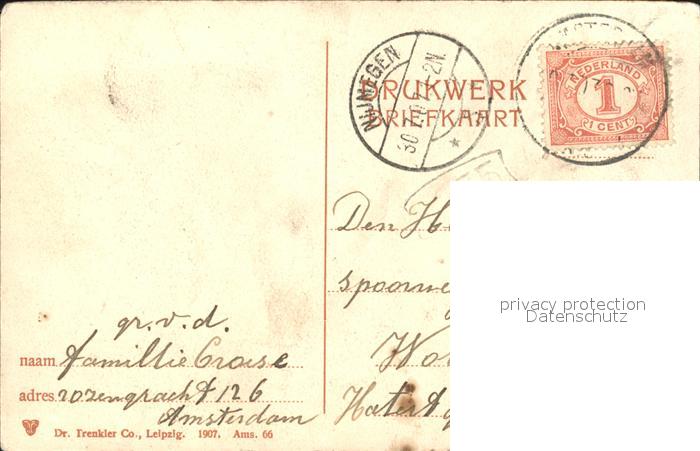 NIJMEGEN
30.7.07 1-2N.
DRUKWERK
BRIEFKAART
NEDERLAND
1
CENT
Den H
spoorwe
Wo
Hatert
privacy protection
Datenschutz
gr. v. d.
naam famillie Croese
adres rozengracht 126
Amsterdam
Dr. Trenkler Co., Leipzig. 1907. Ams. 66